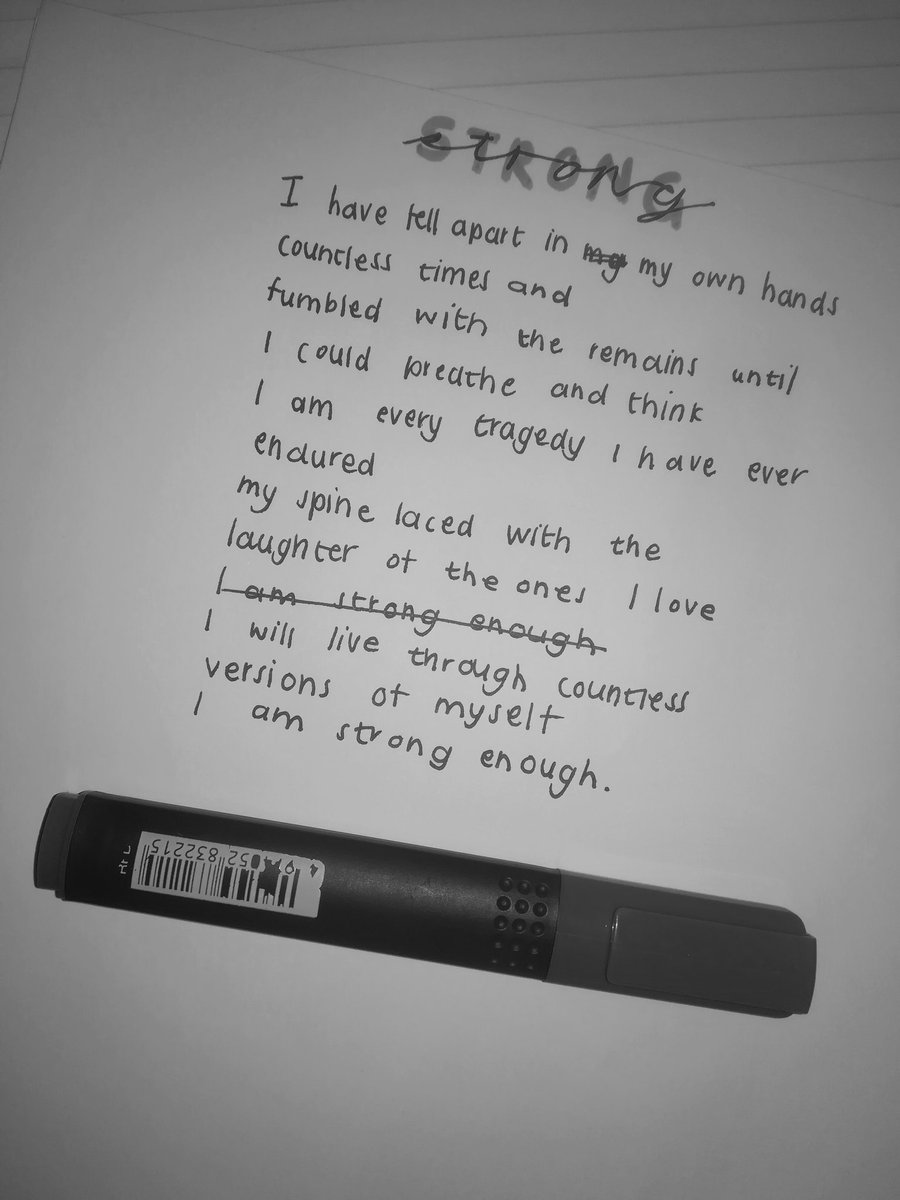 STRONG
strong
I have fell apart in my my own hands
countless times and
fumbled with the remains until
I could breathe and think
I am every tragedy I have ever
endured
my spine laced with the
laughter of the ones I love
I am strong enough
I will live through countless
versions of myself
I am strong enough.
52 832215